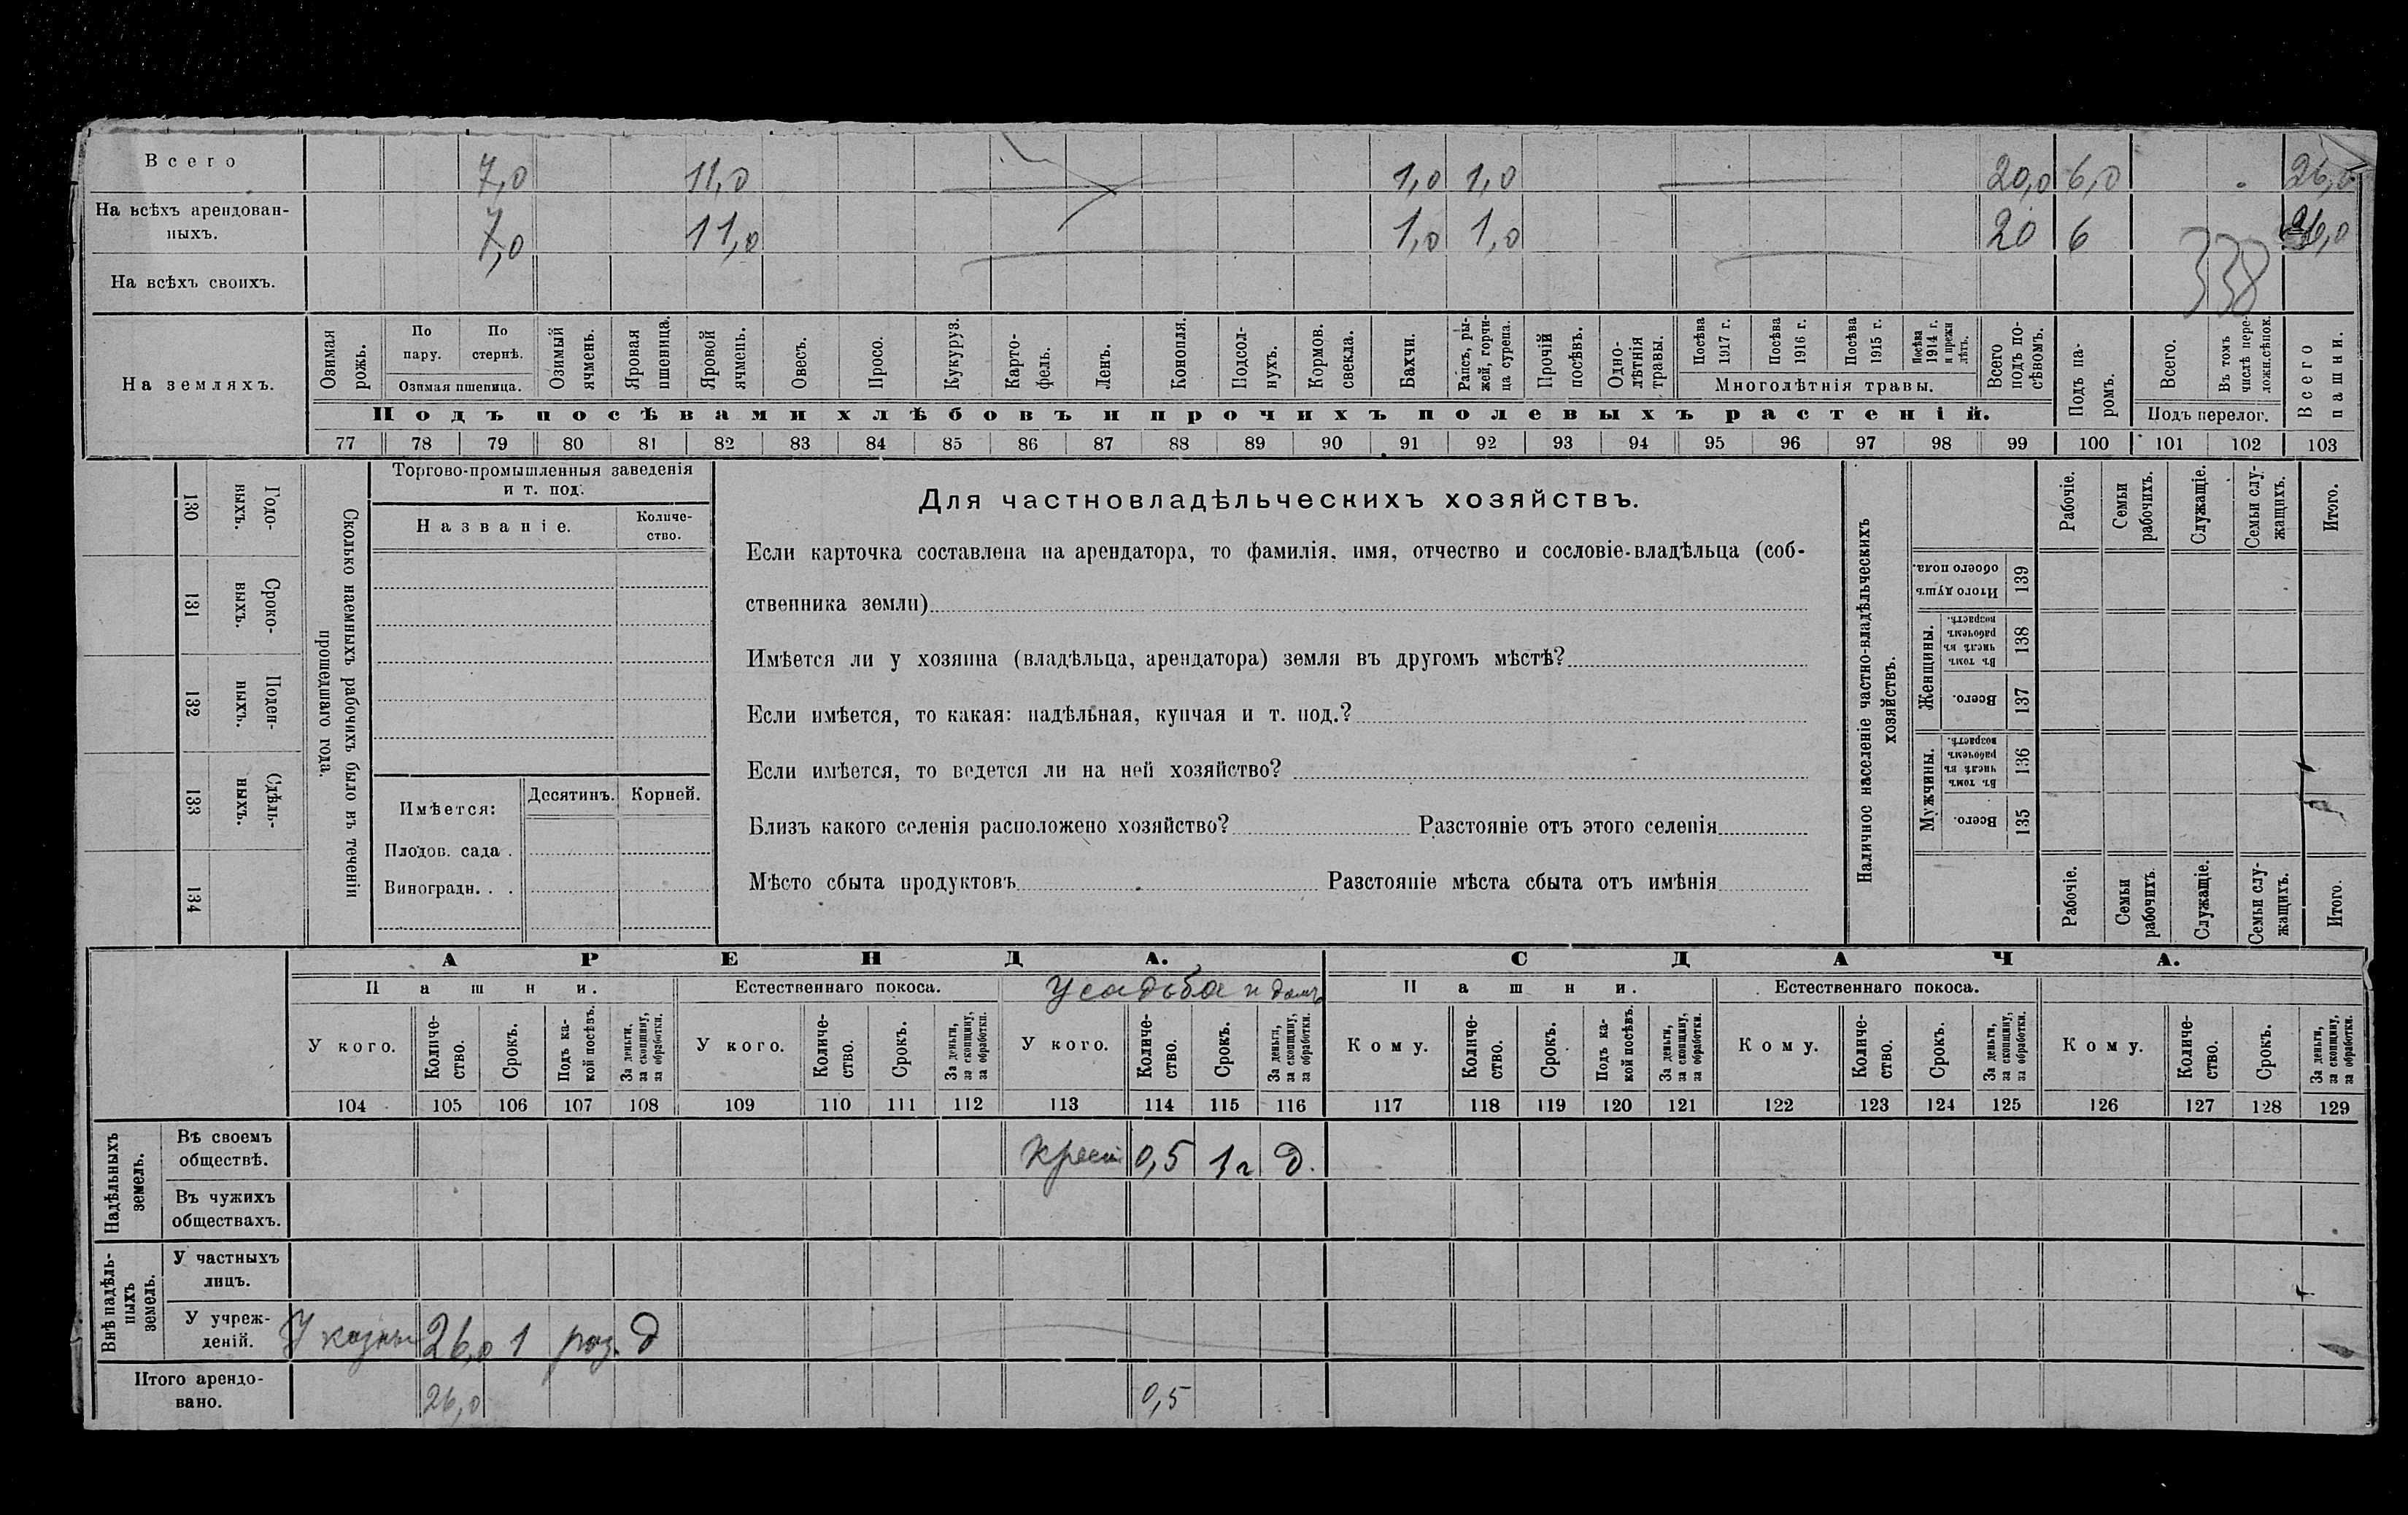 Всего 7,0 11,0 1,0 1,0 20,0 6,0 26,0
На всѣхъ арендован-
ныхъ. 7,0 11,0 1,0 1,0 20 6 26,0
338
На всѣхъ своихъ.
На земляхъ.
Озимая рожь.
По пару.
По стернѣ.
Озимая пшеница.
Озимый ячмень.
Яровая пшеница.
Яровой ячмень.
Овесъ.
Просо.
Кукуруз.
Карто-
фель.
Ленъ.
Конопля.
Подсол-
нухъ.
Кормов. свекла.
Бахчи.
Рапсъ, ры-
жей, горчи-
ца сурепа.
Прочій посѣвъ.
Одно-
лѣтнія травы.
Посѣва 1917 г.
Посѣва 1916 г.
Посѣва 1915 г.
Посѣва 1914 г. и прежн лѣтъ.
Многолѣтнія травы.
Всего подъ по-
сѣвомъ.
Подъ па-
ромъ.
Всего.
Въ томъ числѣ пере-
ложн.сѣнок.
Подъ перелог.
Всего пашни.
Подъ посѣвами хлѣбовъ и прочихъ полевыхъ растеній.
77 78 79 80 81 82 83 84 85 86 87 88 89 90 91 92 93 94 95 96 97 98 99 100 101 102 103
130 Годо-
выхъ.
131 Сроко-
выхъ.
132 Поден-
ныхъ.
133 Сдѣль-
ныхъ.
134
Сколько наемныхъ рабочихъ было въ теченіи
прошедшаго года.
Торгово-промышленныя заведенія
и т. под.
Названіе.
Количе-
ство.
Имѣется:
Десятинъ. Корней.
Плодов. сада .
Виноградн. . .
Для частновладѣльческихъ хозяйствъ.
Если карточка составлена на арендатора, то фамилія, имя, отчество и сословіе-владѣльца (соб-
ственника земли)
Имѣется ли у хозяина (владѣльца, арендатора) земля въ другомъ мѣстѣ?
Если имѣется, то какая: надѣльная, купчая и т. под.?
Если имѣется, то ведется ли на ней хозяйство?
Близъ какого селенія расположено хозяйство? Разстояніе отъ этого селенія
Мѣсто сбыта продуктовъ Разстояніе мѣста сбыта отъ имѣнія
Наличное населеніе частно-владѣльческихъ
хозяйствъ.
Рабочіе.
Семьи рабочихъ.
Служащіе.
Семьи слу-
жащихъ.
Итого.
Итого душъ обоего пола. 139
Женщины.
Въ томъ числѣ въ рабочемъ возрастѣ. 138
Всего. 137
Мужчины.
Въ томъ числѣ въ рабочемъ возрастѣ. 136
Всего. 135
Рабочіе.
Семьи рабочихъ.
Служащіе.
Семьи слу-
жащихъ.
Итого.
АРЕНДА. СДАЧА.
Пашни. Естественнаго покоса. Усадьба и домъ Пашни. Естественнаго покоса.
У кого.
Количе-
ство.
Срокъ.
Подъ ка-
кой посѣвъ.
За деньги, за скопщину, за обработки.
У кого.
Количе-
ство.
Срокъ.
За деньги, за скопщину, за обработки.
У кого.
Количе-
ство.
Срокъ.
За деньги, за скопщину, за обработки.
Кому.
Количе-
ство.
Срокъ.
Подъ ка-
кой посѣвъ.
За деньги, за скопщину, за обработки.
Кому.
Количе-
ство.
Срокъ.
За деньги, за скопщину, за обработки.
Кому.
Количе-
ство.
Срокъ.
За деньги, за скопщину, за обработки.
104 105 106 107 108 109 110 111 112 113 114 115 116 117 118 119 120 121 122 123 124 125 126 127 128 129
Надѣльныхъ земель.
Въ своемъ
обществѣ. 0,5 1 г д.
Въ чужихъ
обществахъ.
Внѣ надѣль-
ныхъ земель.
У частныхъ
лицъ.
У учреж-
деній. У казны 26,0 1 раз. д
Итого арендо-
вано. 26,0 0,5